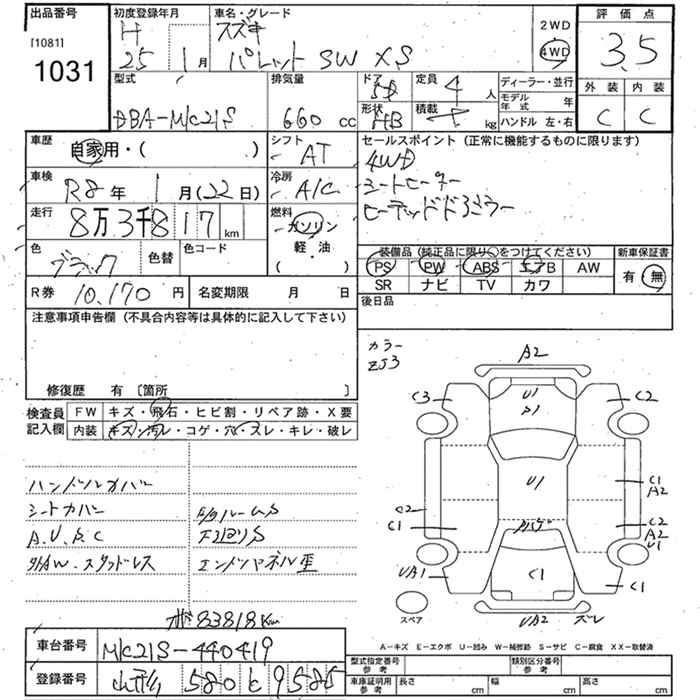 出品番号
[1081]
1031
初度登録年月 車名・グレード
H 25 1月 スズキ パレット SW XS
2WD
4WD
評価点
3.5
外装 内装
C C
型式 排気量 ドア 定員 4人 ディーラー・並行
DBA-MK21S 660 cc 5D
モデル年式 年
形状 HB 積載 kg ハンドル 左・右
車歴 自家用・( )
シフト AT
セールスポイント (正常に機能するものに限ります)
4WD
シートヒーター
ヒーテッドドアミラー
車検 R8年 1月(22日)
冷房 A/C
走行 8万3千817km
燃料 ガソリン
軽・油
( )
色 ブラック 色替 色コード
装備品(純正品に限り○をつけてください)
PS PW ABS エアB AW
SR ナビ TV カワ
新車保証書
有 無
R券 10,170円 名変期限 月 日
後日品
注意事項申告欄(不具合内容等は具体的に記入して下さい)
修復歴 有〔箇所 〕
検査員記入欄
FW キズ・飛石・ヒビ割・リペア跡・X要
内装 キズ・汚レ・コゲ・穴・スレ・キレ・破レ
ハンドルカバー
シートカバー
A.U.S.C
外AW.スタッドレス
下回りS
エンドパネル歪
83818Km
カラー
ZJ3
A2
C3
U1
A1
C2
U1
C1
A2
C2
C1
C2
A2
U1
UA1
C1
C1
UA2
ズレ
スペア
A-キズ E-エクボ U-凹み W-補修跡 S-サビ C-腐食 XX-取替済
車台番号 MK21S-440419
登録番号 山形 580 と 9585
型式指定番号 参考
類別区分番号 参考
車庫証明用 参考 長さ cm 幅 cm 高さ cm